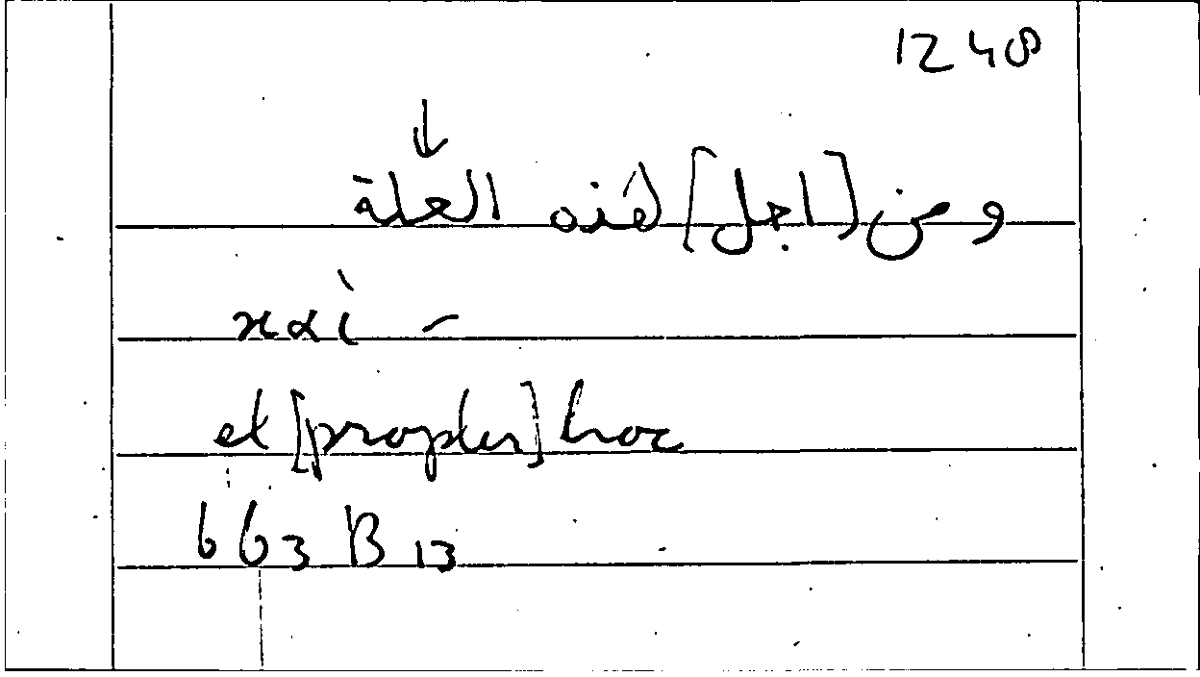 1248
↓
ومن [اجل] هذه العلة
καὶ –
et [propter] hoc
663 B 13